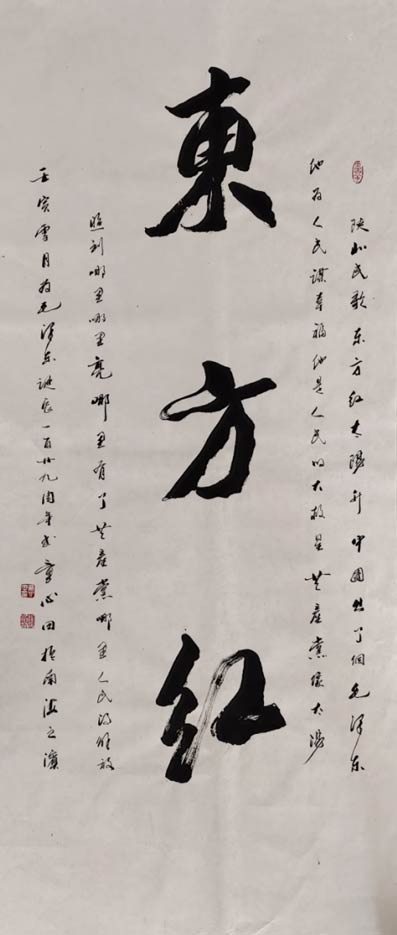 東方红
陕北民歌东方红太陽升中國出了個毛泽东
他为人民谋幸福他是人民的大救星共產黨像太陽
照到哪里哪里亮哪里有了共產黨哪里人民得解放
壬寅雪月为毛泽东诞辰一百廿九周年书 心田於南海之濱